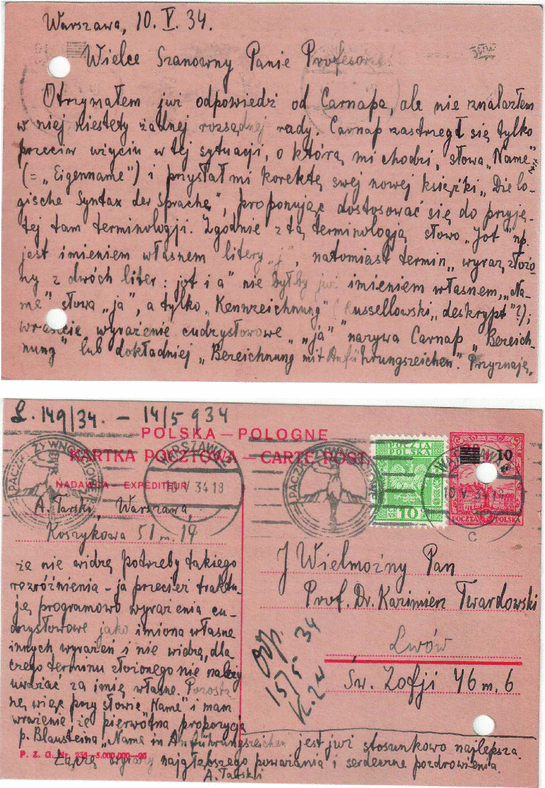 Warszawa, 10. V. 34.
Wielce Szanowny Panie Profesorze!
Otrzymałem już odpowiedź od Carnapa, ale nie znalazłem
w niej niestety żadnej rozsądnej rady. Carnap zastrzegł się tylko
przeciw wzięciu w tej sytuacji, o którą mi chodzi, słowa „Name"
(= „Eigenname") i przysłał mi korektę swej nowej książki „Die lo-
gische Syntax der Sprache", proponując dostosować się do przyję-
tej tam terminologji. Zgodnie z tą terminologją słowo „Jot" np.
jest imieniem własnem litery „j", natomiast termin „wyraz złożo-
ny z dwóch liter: jot i a" nie byłby już imieniem własnem, „Na-
me" słowa „ja", a tylko „Kennzeichnung" (Russellowski „deskrypt"?);
wreszcie wyrażenie cudzysłowowe „„ja"" nazywa Carnap „Bezeich-
nung" lub dokładniej „Bezeichnung mit Anführungszeichen". Przyznaję,
L. 149/34. - 14/5 934
POLSKA — POLOGNE
KARTKA POCZTOWA — CARTE POST
NADAWCA — EXPEDITEUR
A. Tarski, Warszawa,
Koszykowa 51 m. 14
PACZKI ŻYWNOŚCIOWE
WARSZAWA
10 V 34 18
PACZKI
POCZTA POLSKA
10
10
10 V 34
POCZTA POLSKA
C
że nie widzę potrzeby takiego
rozróżnienia - ja przecież traktu-
ję programowo wyrażenia cu-
dzysłowowe jako imiona własne
innych wyrażeń i nie widzę, dla-
czego terminu złożonego nie należy
uważać za imię własne. Pozosta-
nę więc przy słowie „Name" i mam
wrażenie, że pierwotna propozycja
p. Blausteina „Name in Anführungszeichen" jest już stosunkowo najlepsza.
Łączę wyrazy najgłębszego poważania i serdeczne pozdrowienia
A. Tarski
J Wielmożny Pan
Prof. Dr. Kazimierz Twardowski
Lwów
Św. Zofji 46 m. 6
Odp.
15/5 34